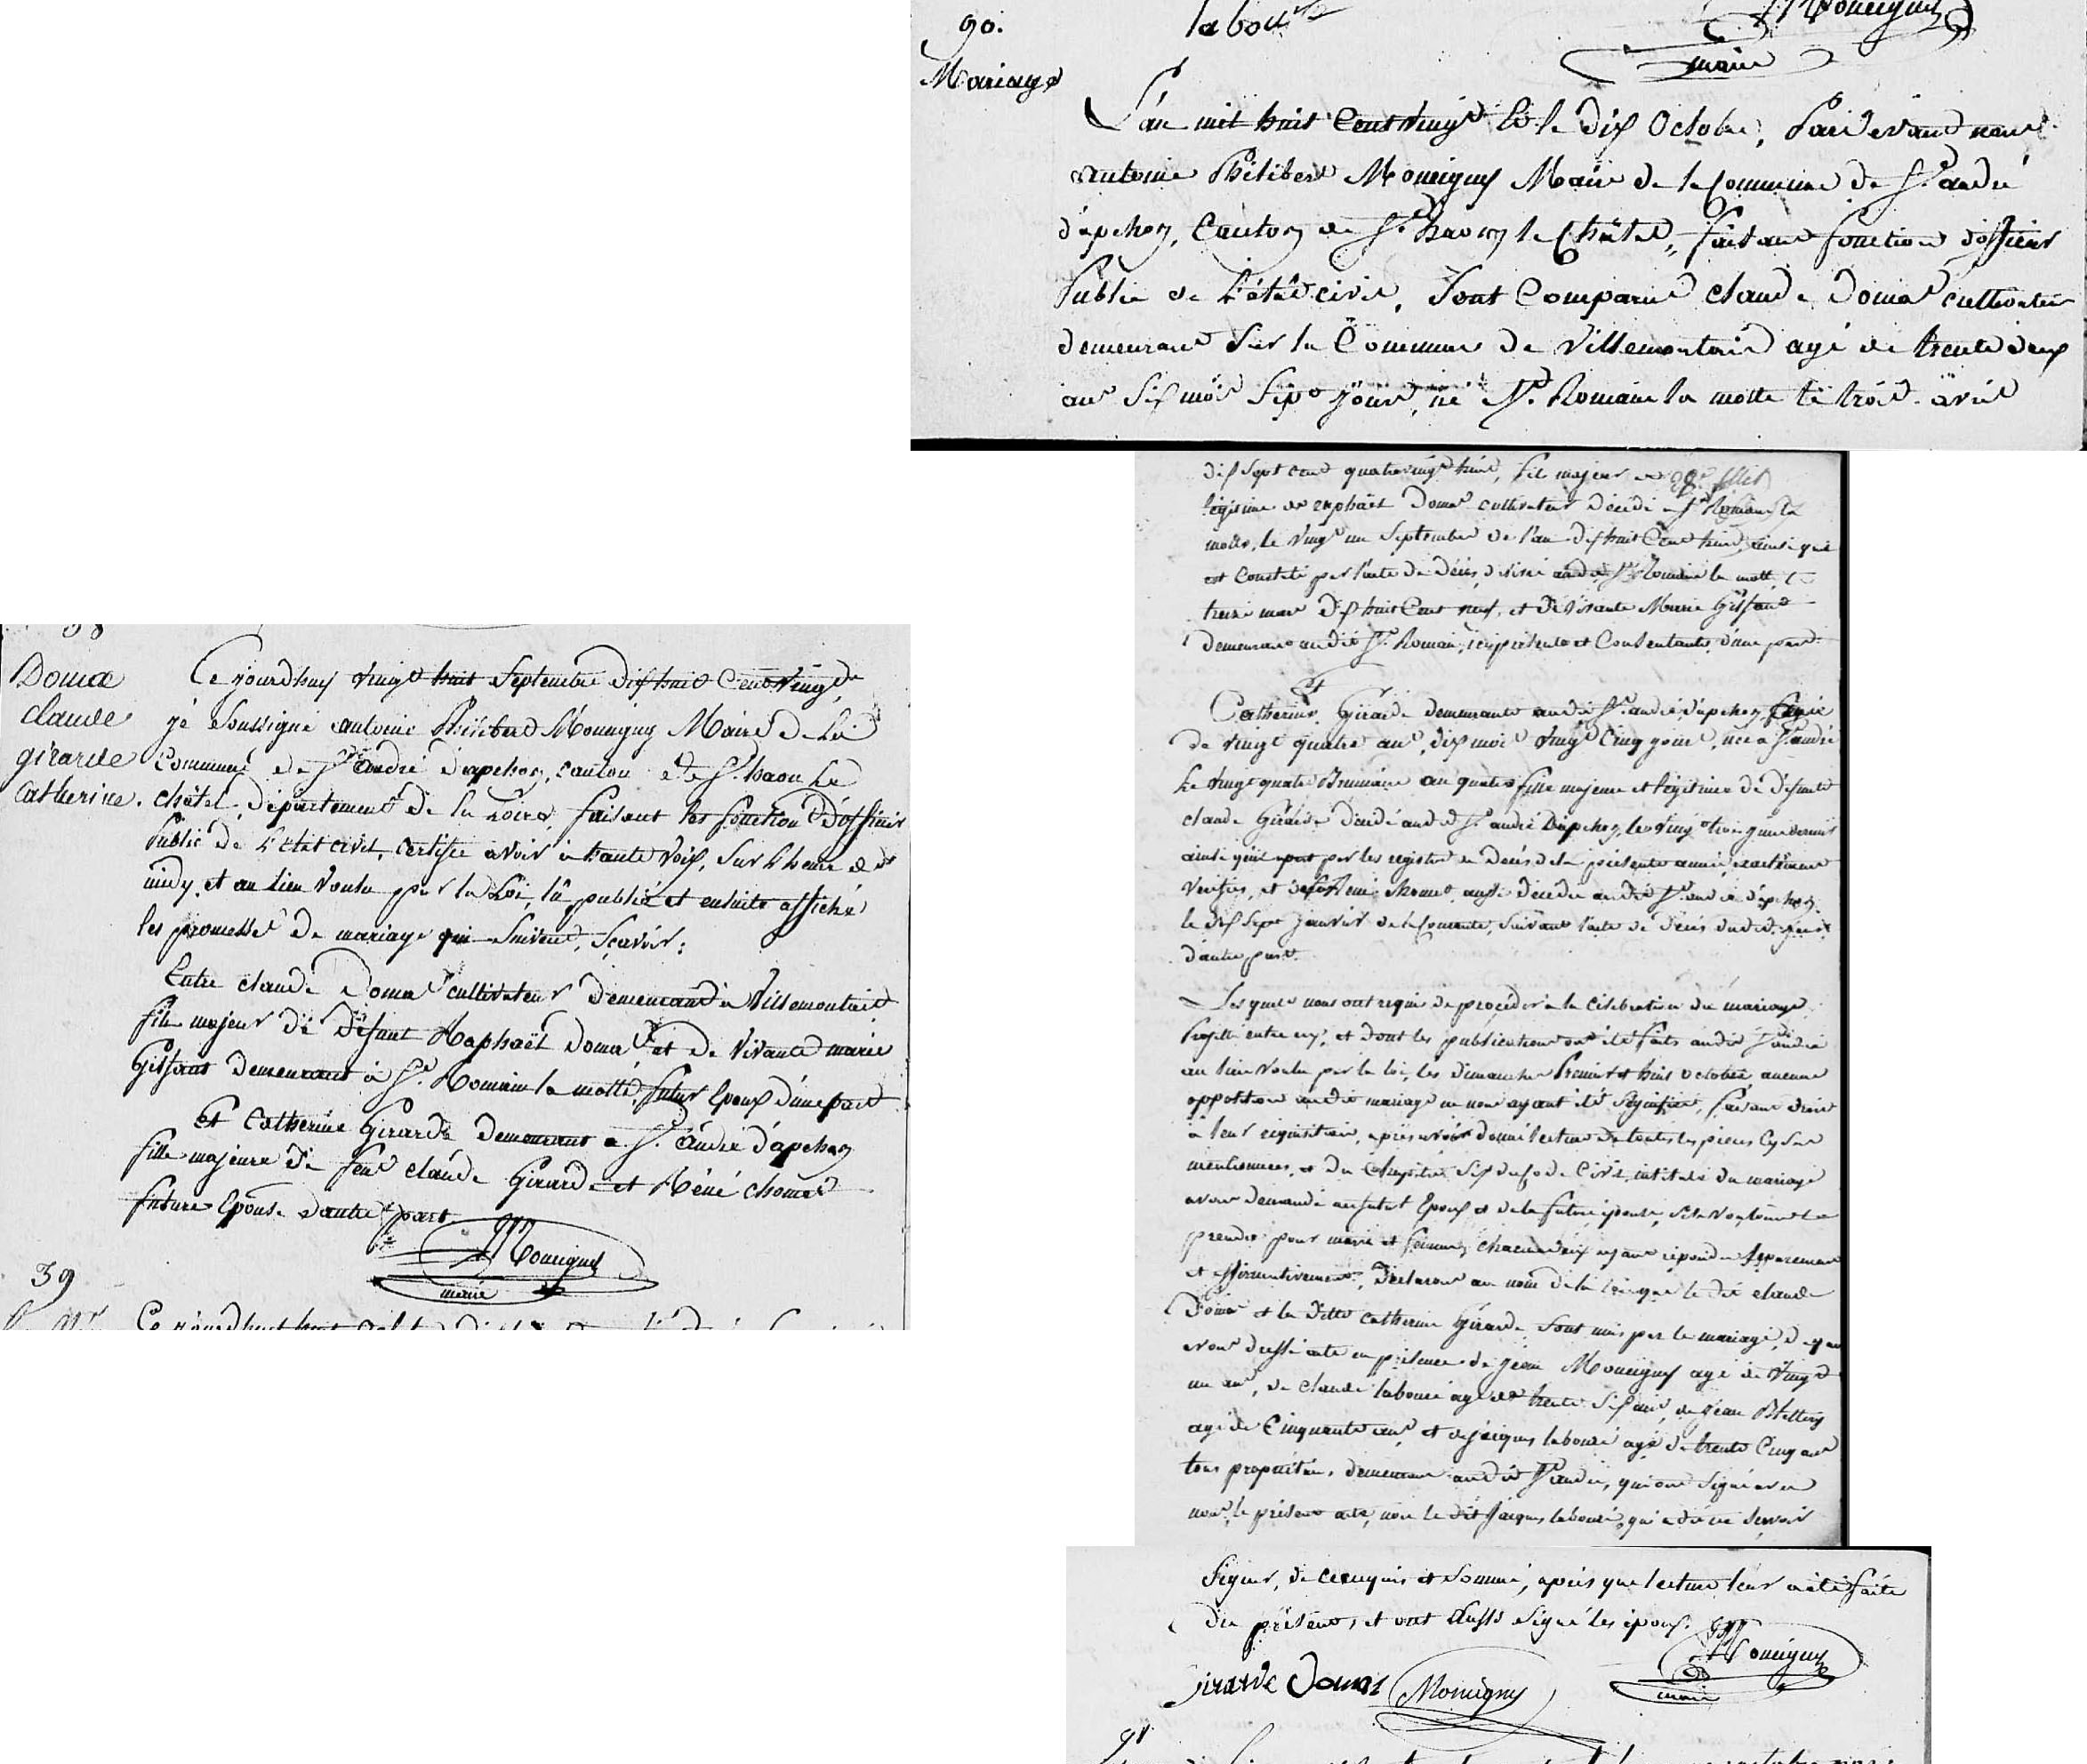 90.
Mariage
labou
Monuigny
maire
L'an mil huit Cent vingt et le dix Octobre, Pardevant nous
antoine Philibert Monuigny Maire de la Commune de St. andré
d'apchon, Canton de St. haon le Châtel, faisant fonction d'officier
Public de L'état civil, Sont Comparus claude Domas cultivateur
demeurant Sur la Commune de Villemontais agé de trente deux
ans Six mois Sept jours, né St. Romain la motte le trois avril
dix Sept cent quatrevingt huit, fils majeur et
légitime de raphaël Domas cultivateur décédé a St. Romain la
motte, le vingt un Septembre de l'an dix huit Cent huit, ainsi qu'il
est Constaté par l'acte de décès, délivré audit St. Romain la motte, le
treize mars dix huit Cent neuf, et de vivante Marie Gitfant
demeurant audit St. Romain, ici présente et Consentante, d'une part.
Et
Catherine Girarde demeurante audit St. andré d'apchon, agée
de vingt quatre ans, dix mois vingt Cinq jours, née a St. andré
Le vingt quatre Brumaire an quatre fille majeure et légitime de défunts
claude Girarde décédé audit St. andré Dapchon, le vingt trois juin dernier
ainsi qu'il apert par les registres de Décès de la présente année, exactement
vérifiés, et de Réné chomet, aussi décédée audit St. andré d'apchon
le dix Sept janvier de la Courante, Suivant l'acte de décès dudit jour
d'autre part.
Lesquels nous ont requis de procéder à la célébration du mariage
Projetté entre eux, et dont les publications ont été faites audit St. andré
au lieu voulu par la loi, les dimanches Premier et huit octobre, aucune
opposition audit mariage ne nous ayant été Signifiée, faisant droit
à leur réquisition, après avoir donné lecture de toutes les pièces cy dessus
mentionnées, et du Chapitre Six du Code Civil, intitulé du mariage
avons demandé au futur Epoux et de la future épouse, S'ils veulent se
prendre pour mari et femme, chacun d'eux ayant répondu Séparément
et affirmativement, Déclarons au nom de la loi que le dit claude
Domas et la Ditte catherine Girarde Sont unis par le mariage, de quoi
avons dressé acte en présence de jean Monuigny agé de vingt
un ans, de claude labouré agé de trente Six ans, de jean
agé de Cinquante ans, et de jacques labouré agé de trente Cinq ans
tous propriétaires, demeurant audit St. andré, qui ont Signé avec
nous, le présent acte, non le dit jacques labouré, qui a déclaré ne Savoir
Signer, de ce enquis et Sommé, après que lecture leur a été faite
du présent, et ont aussi Signé les époux.
Monuigny
maire
Girarde Domas Monuigny
91
38
Domas
claude
girarde
Catherine.
Ce jourdhuy vingt huit Septembre dix huit Cent vingt,
je Soussigné antoine Philibert Monuigny Maire de la
Commune de St. andré d'apchon, canton de St. haon Le
Châtel, département de la Loire, faisant les fonctions d'officier
Public de L'état civil, certifie avoir à haute voix, Sur L'heure de
midy, et au lieu voulu par la Loi, lu publié et ensuite affiché
les promesses de mariage qui Suivent, Sçavoir:
Entre claude Domas cultivateur demeurant à Villemontais
fils majeur de défunt Raphaël domas, et de vivante marie
Gitfant demeurant à St. Romain la motte, futur Epoux d'une part
Et Catherine Girarde demeurant a St. andré d'apchon
fille majeure de feus claude Girarde et Réné chomet
future Epouse d'autre part
Monuigny
maire
39